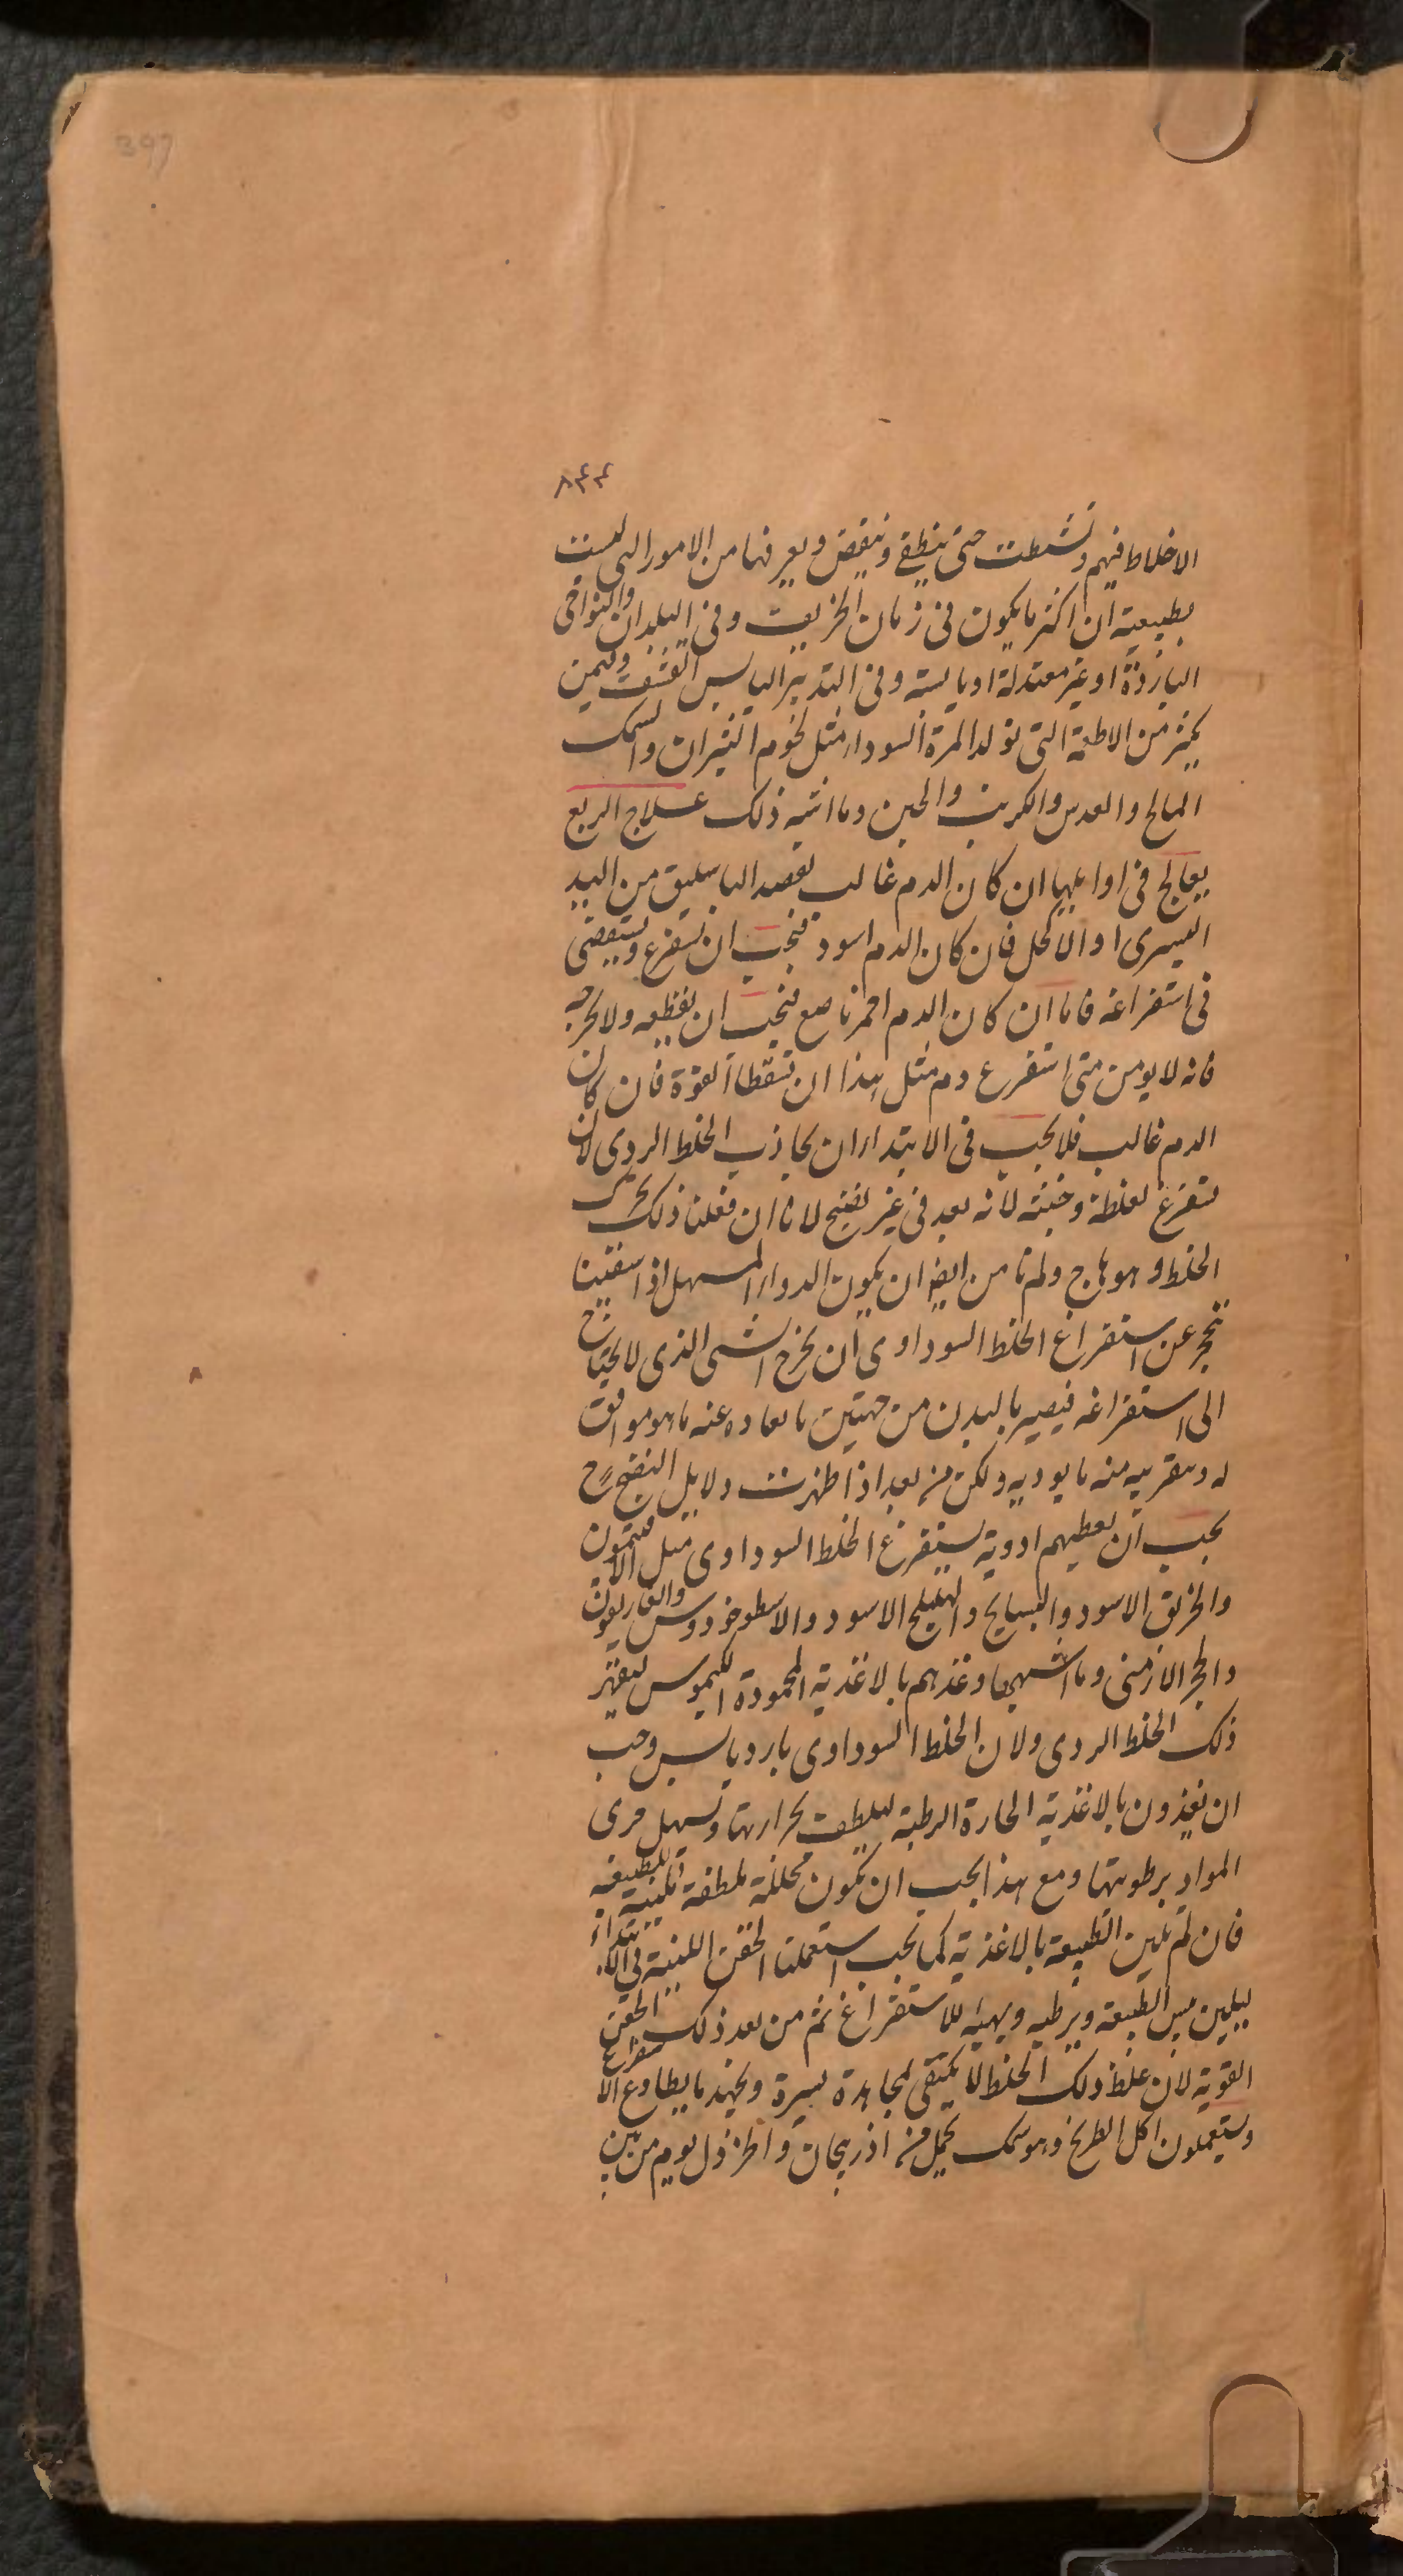 397
۸۴۴
الاخلاط فيهم وتشتطت حتى ينطفي وينقض ويعرفها من الامور التي ليست
بطبيعية ان اكثر ما يكون في زمان الخريف وفي البلدان والنواحي
الباردة او غير معتدلة او يابسة وفي التدبير اليابس القشف وفيمن
يكثر من الاطعمة التي تولد المرة السوداء مثل لحوم الثيران والسمك
المالح والعدس والكرنب والجبن وما اشبه ذلك علاج الربع
يعالج في اوايلها ان كان الدم غالب بفصد الباسليق من اليد
اليسرى او الاكحل فان كان الدم اسود فيجب ان تستفرغ ويستقصى
في استفراغه فاما ان كان الدم احمر ناصع فيجب ان يقطعه ولا يخرجه
فانه لا يومن متى استفرغ دم مثل هذا ان تسقط القوة فان كان
الدم غالب فلا يجب في الابتداء ان يجاذب الخلط الردى لان
يستفرغ لغلظه وخبثه لانه بعد في غير نضيج لانا ان فعلنا ذلك تحرك
الخلط وهو هاج ولم نامن ايضا ان يكون الدواء المسهل اذا سقينا
تنجر عن استفراغ الخلط السوداوى ان يخرج الشى الذى لا يحتاج
الى استفراغه فيصير بالبدن من جهتين ما بعاده عنه ما هو موافق
له وتقريبه منه ما يوديه ولكن من بعد اذا ظهرت دلايل النضج ح
يجب ان يعطيهم ادوية يستفرغ الخلط السوداوى مثل الافيتمون
والخربق الاسود والبسبايج والهليلج الاسود والاسطوخودوس والغاريقون
والحجر الارمنى وما اشبهها وغذهم بالاغذية المحمودة الكيموس ليقهر
ذلك الخلط الردى ولان الخلط السوداوى بارد يابس وجب
ان يغذون بالاغذية الحارة الرطبة ليلطف بحرارتها وتسهل مرى
المواد برطوبتها ومع هذا يجب ان تكون محللة ملطفة ملينة للطبيعة
فان لم تلين الطبيعة بالاغذية كما يجب استعملنا الحقن اللينة في الابتداء
ليلين يبس الطبيعة ويرطبه ويهيئه للاستفراغ ثم من بعد ذلك الحقن
القوية لان غلظ ذلك الخلط لا يكتفى لمجاهدة يسيرة وبجهد ما يطاوع الاستفراغ
ويستعملون اكل الطريخ وهو سمك يحمل من اذربيجان واطرخذل يوم من بين